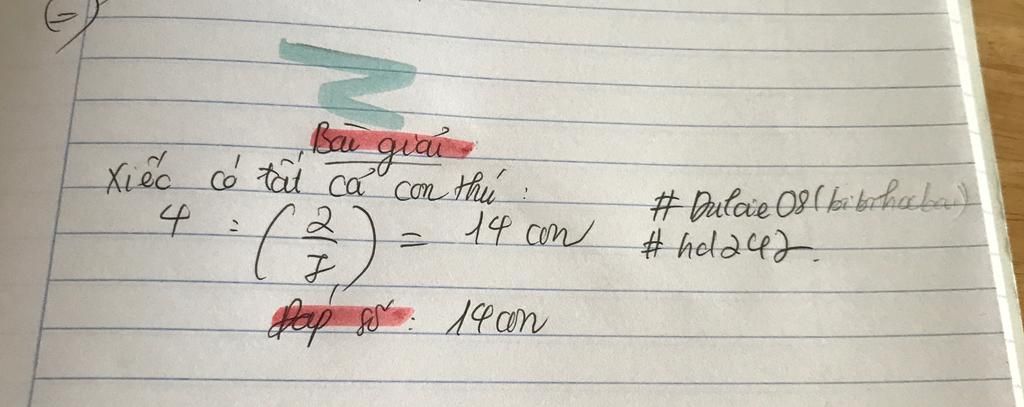 =)
Bài giải
Xiếc có tất cả con thú :
4 : ( 2/7 ) = 14 con
# Dulcie 08 (bibihocbai)
# hd242.
Đáp số : 14 con